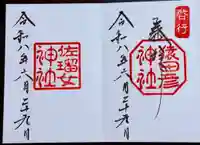 啓行
奉拝
猿田彦
神社
令和八年六月二十九日
佐瑠女
神社
令和八年六月二十九日